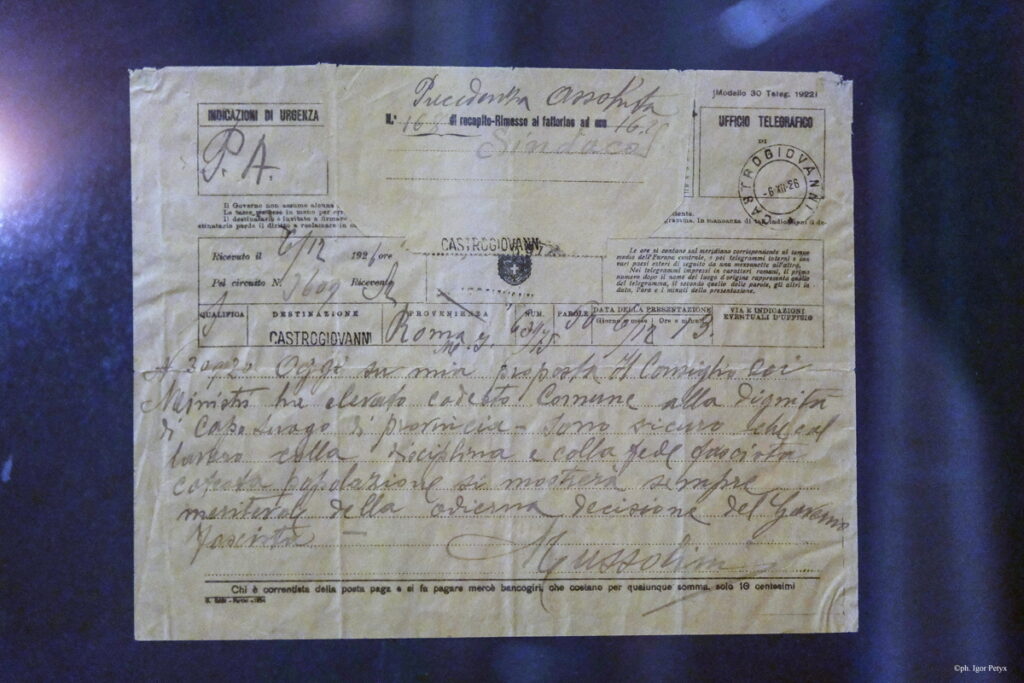 Precedenza Assoluta
(Modello 30 Teleg. 1922)
INDICAZIONI DI URGENZA
P. A.
N.° 16 di recapito-Rimesso al fattorino ad ore 16
Sindaco
UFFICIO TELEGRAFICO
DI
CASTROGIOVANNI
-6 XII 26
Il Governo non assume alcuna
Le tasse
Il destinatario è invitato a firmare
perde il diritto a reclamare in
in mancanza di tali indicazioni il de
Ricevuto il 6/12 1926 ore
CASTROGIOVANNI
Pel circuito N. 3609 Ricevente
Le ore si contano sul meridiano corrispondente al tempo
medio dell'Europa centrale, e pei telegrammi interni e con
vari paesi esteri di seguito da una mezzanotte all'altra.
Nei telegrammi impressi in caratteri romani, il primo
numero dopo il nome del luogo d'origine rappresenta quello
del telegramma, il secondo quello delle parole, gli altri la
data, l'ora e i minuti della presentazione.
QUALIFICA DESTINAZIONE PROVENIENZA NUM. PAROLE DATA DELLA PRESENTAZIONE VIA E INDICAZIONI
Giorno e mese Ore e minuti EVENTUALI D'UFFICIO
CASTROGIOVANNI Roma 50 6/12 13
Oggi su mia proposta Il Consiglio dei
Ministri ha elevato codesto Comune alla dignità
di capoluogo di provincia - Sono sicuro che col
lavoro colla disciplina e colla fede fascista
codesta popolazione si mostrerà sempre
meritevole della odierna decisione del Governo
Fascista —
Mussolini
Chi è correntista della posta paga e si fa pagare mercè bancogiri, che costano per qualunque somma, solo 10 centesimi
©ph. Igor Petyx